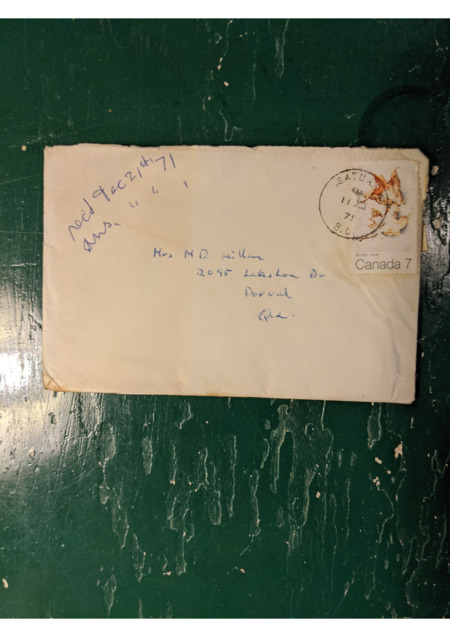 rec'd Dec 21st 71
ans. " " "
SATURNA
11 XII
71
B.C.
Canada 7
Mrs M.D. Millar
2095 Lakeshore Dr
Dorval
Que.